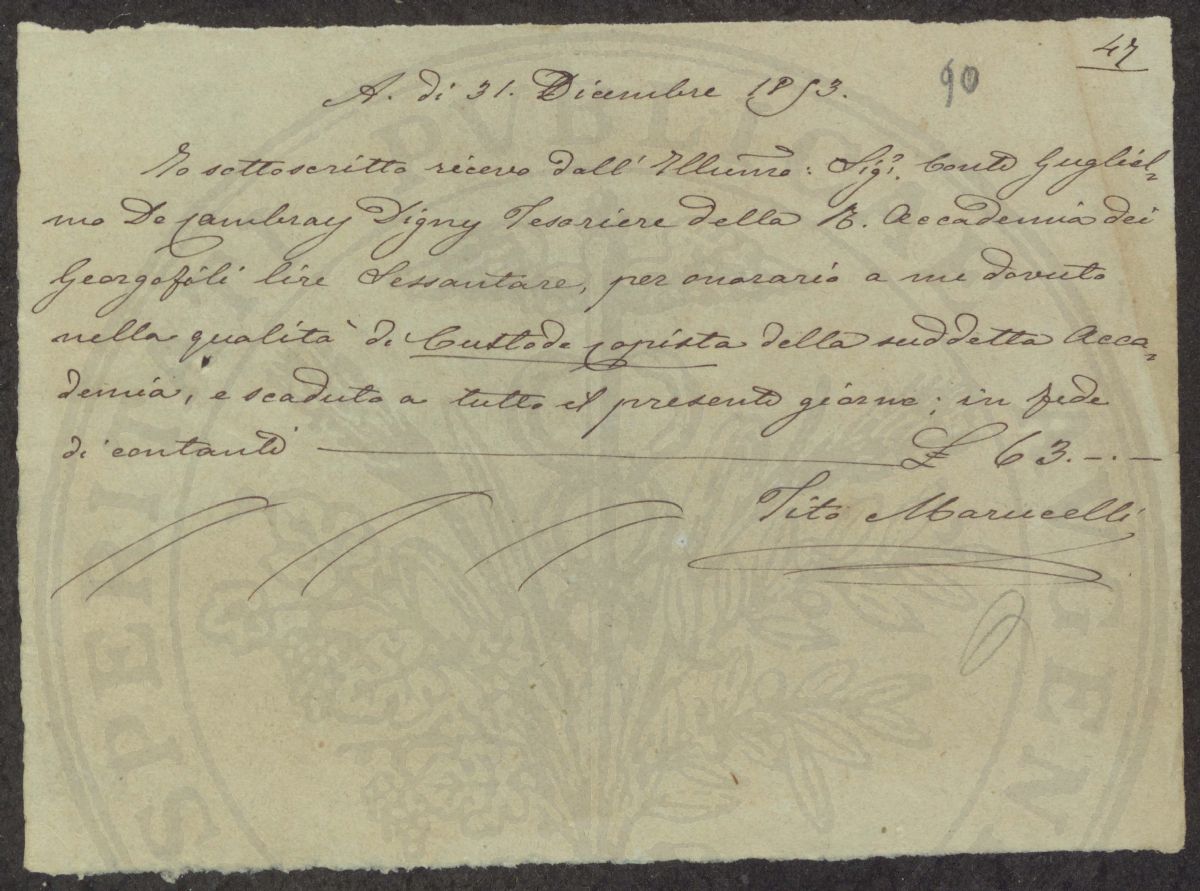 47
90
A. di 31. Dicembre 1853.
Io sottoscritto ricevo dall' Illumo: Sigr. Conte Gugliel-
mo De Cambray Digny Tesoriere della R. Accademia dei
Georgofili lire Sessantare, per onorario a me dovuto
nella qualità di Custode copista della suddetta Acca-
demia, e scaduto a tutto il presente giorno; in fede
di contanti £ 63.-.-
Tito Marucelli